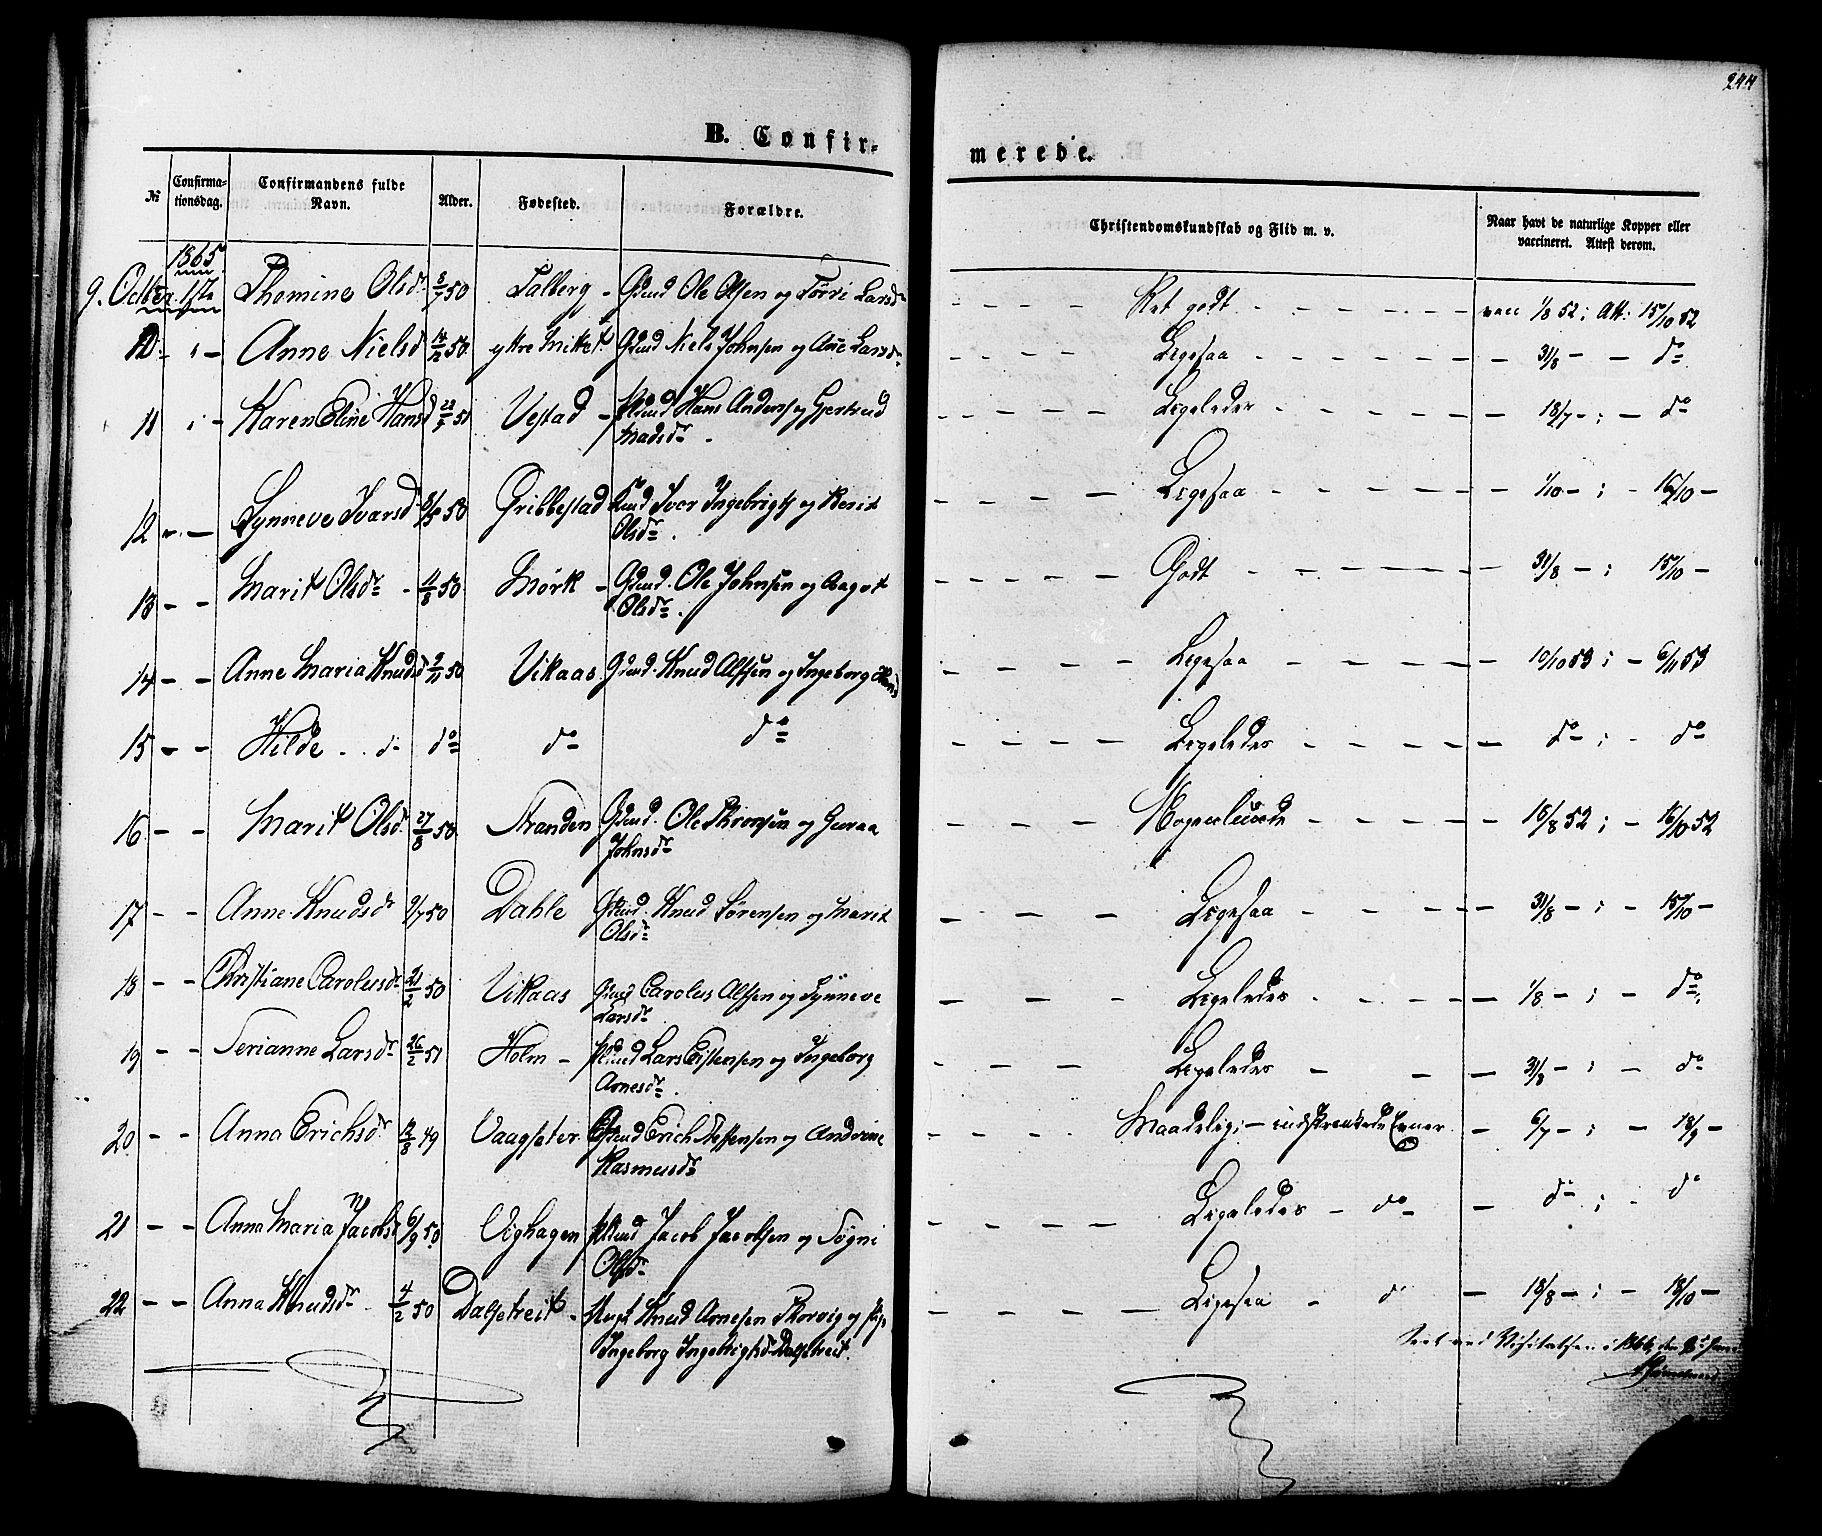 244
B. Confirmerede.
№ Confirmationsdag. Confirmandens fulde Navn. Alder. Fødested. Forældre. Christendomskundskab og Flid m. v. Naar havt de naturlige Kopper eller vaccineret. Attest derom.
1865
9. Octbr 1ste Thomine Olsdr 50 Talberg - Gmd Ole Olsen og Larsdr Ret godt - - - vacc 1/8 52; Att: 15/10 52
10 - Anne Nielsd 50 ytre Gmd Niels Johnsen og Ane Larsdr - - - Ligesaa - - - 31/8 - - do
11 - Karen Eline Hansd 22/ 51 Vestad - Hans Anders og Gjertrud
Madsdr - - - Ligeledes - - - 18/7 - ; - do
12 - Synneve Ivarsd 50 Gribbestad Ivar Ingebrigts og Berit
Olsdr. - - - Ligesaa - - - 1/10 - ; - 16/10 -
13 - - Marit Olsdr - 11/8 50 Mørk - Gmd. Ole Johnsen og Aagot
Olsdr. - - - Godt - - - 31/8 - ; 15/10 -
14 - - Anne Maria Knudsd 9/11 50 Vikaas Gmd. Knud Alfsen og Ingeborg - - - Ligesaa - - - 10/10 53 ; - 6/11 53
15 - - Hilde - d- do do do - - - Ligeledes - - - do - ; - do
16 - - Marit Olsd. 27/8 50 Stranden Gmd. Ole Thronsen og Guraa
Johnsdr - - - Mogenlunde - - - 18/8 52 ; - 16/10 52
17 - - Anne Knudsdr 9/7 50 Dahle Gmd. Knud Sørensen og Marit
Olsdr - - - Ligesaa - - - 31/8 - ; - 15/10 -
18 - - Christiane Carolusdr 21/2 50 Vikaas Gmd Carolus Alfsen og Synneve
Larsdr - - - Ligeledes - - - 1/8 - ; - do
19 - - Serianne Larsdr 26/2 51 Holm - Lars Eistensen og Ingeborg
Arnesdr. - - - Ligeledes - - - 31/8 - ; - do
20 - - Anna Erichsdr 12/8 49 Vaagsæter Gmd Erich Steffensen og Andrine
Rasmusdr - - - Maadelig; - indskrænkede Evner - 6/7 - ; - 18/9 -
21 - - Anna Maria Jacobsd 6/9 50 Vighagen Jacob Jacobsen og Søgni
Olsdr - - - Ligeledes - do - do - ; - do
22 - - Anna Knudsdr. 4/2 50 Dalsetreit - Knud Arnesen Thorvig og
Ingeborg Ingebrigtsd Dalsetreit. - - - Ligesaa - do - 18/8 - ; - 18/10 -
Seet ved Visitatsen i 1866, den